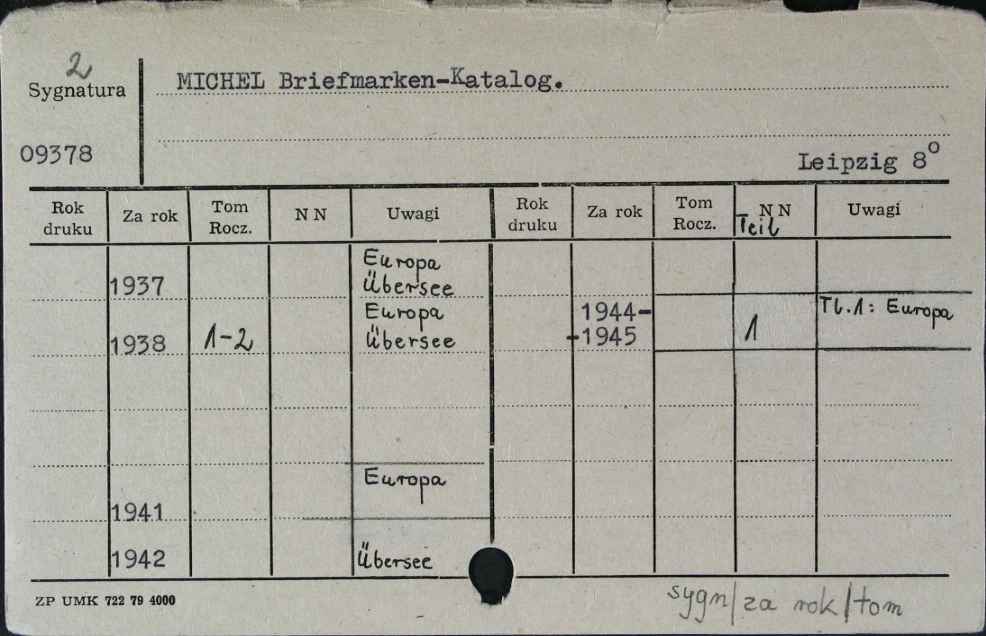 2
Sygnatura
MICHEL Briefmarken-Katalog.
09378
Leipzig 8º
Rok druku
Za rok
Tom Rocz.
NN
Uwagi
Rok druku
Za rok
Tom Rocz.
NN
Teil
Uwagi
1937 Europa
Übersee
1938 1-2 Europa
Übersee
1944-
-1945 1 Tl.1: Europa
1941 Europa
1942 Übersee
ZP UMK 722 79 4000
sygn/za rok/tom